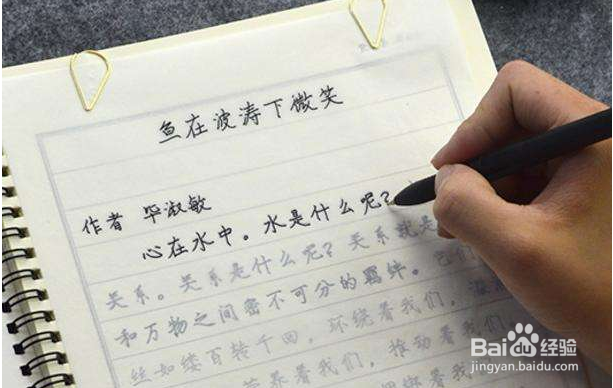 鱼在波涛下微笑
作者 毕淑敏
心在水中。水是什么呢?
关系。关系是什么呢?关系就是
和万物之间密不可分的羁绊。它们
丝如缕百转千回,环绕着我们,滋
营养着我们,推动着我们
Baidu经验
jingyan.baidu.com